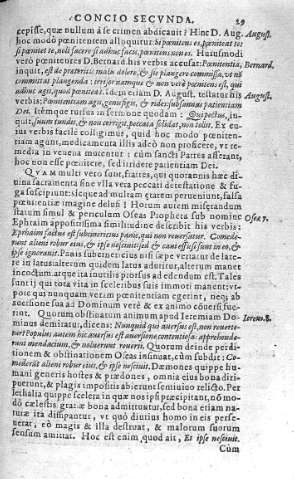 CONCIO SECVNDA. 29
cepisse, quæ nullum à se crimen abdicauit? Hinc D. Aug. August.
hoc modo pœnitentem alloquitur: si pœnitens es, pœniteat te
si pœnitet te, noli facere: si adhuc facis, pœnitens non es. Huiusmodi
verò pœnitentes D. Bernard. his verbis accusat: Pœnitentia, Bernard.
inquit, est de præteritis malis dolere, & sic plangere commissa, vt nõ
committas plangenda: irrisor es namque & non verè pœnitens es, qui
adhuc agis, quod pœniteat. Idem etiam D. August. testatur his August.
verbis: Pœnitentiam agis, genu figis, & rides: subsannas patientiam
Dei. Idemque rursus in sermone quodam: Qui pectus, in-
quit, suum tundit, & non corrigit, peccata solidat, non tollit. Ex cu-
ius verbis facilè colligimus, quod hoc modo pœniten-
tiam agunt, medicamenta illis adeò non proesse, vt re-
media in venena mutentur: cùm sancti Patres asserant,
hoc non esse pœnitere, sed irridere patientiam Dei.
QVAM multi verò sunt, fratres, qui quotannis hæc di-
uina sacramenta sine vlla vera peccati detestatione & fu-
ga suscipiunt: sicque ad multam ætatem perueniunt, falsa
pœnitentiæ imagine delusi? Horum autem miserandum
statum simul & periculum Oseas Propheta sub nomine Oseæ 7.
Ephraim appositissima similitudine describit his verbis:
Ephraim factus est subcinericius panis, qui non reuersatur. Comede-
runt alieni robur eius, & ipse nesciuit: sed & cani effusi sunt in eo, &
ipse ignorauit. Panis subcinericius nisi sæpe vertatur de late-
re in latus, alterum quidem latus aduritur, alterum manet
incoctum, atque ita inutilis prorsus ad edendum est. Tales
sunt ij qui tota vita in sceleribus suis immoti manent: vt-
pote qui nunquam veram pœnitentiam egerint, neque ab
auersione sua ad Dominum verè & ex animo conuersi fue-
rint. Quorum obstinatum animum apud Ieremiam Do- Ierem. 8.
minus demiratur, dicens: Nunquid qui auersus est, non reuerte-
tur? Populus autem hic auersus est auersione contentiosa: apprehende-
runt mendacium, & noluerunt reuerti. Quorum deinde perdi-
tionem & obstinationem Oseas insinuat, cùm subdit: Co-
mederunt alieni robur eius, & ipse nesciuit. Dæmones quippe hu-
mani generis hostes & prædones, omnia eius bona diri-
puerunt, & plagis impositis abierunt semiuiuo relicto. Per
lethalia quippe scelera in quæ nos ipsi præcipitant, nõ mo-
dò cælestis gratiæ bona admittuntur, sed bona etiam na-
turæ ita dissipantur, vt quò diutius homo in eis perse-
uerat, eò magis & illa destruat, & malorum suorum
sensum amittat. Hoc est enim, quod ait, Et ipse nesciuit.
Cùm